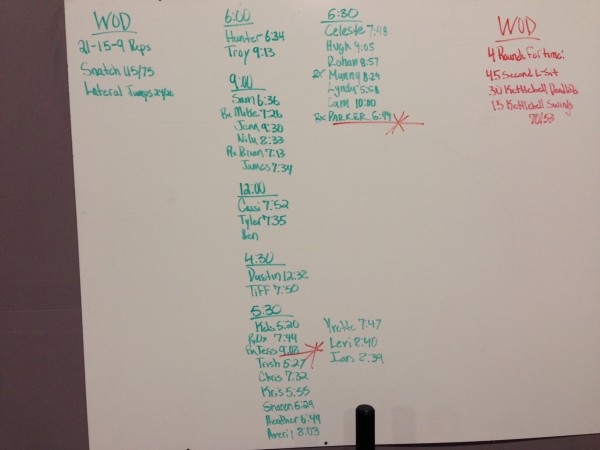 WOD
21-15-9 Reps
Snatch 115/75
Lateral Jumps 24/20
6:00
Hunter 6:34
Troy 9:13
9:00
Sam 6:36
Rx Mike 7:26
Jenn 9:30
Nilu 8:33
Rx Brian 7:13
James 7:34
12:00
Cassi 7:52
Tyler 7:35
Ben
4:30
Dustin 12:32
Tiff 7:50
5:30
Kids 5:20
Rx 7:44
Rx Jess 9:08
Trish 5:27
Chris 7:32
Kris 5:55
Sharon 6:29
Heather 6:49
Averi 8:03
Yvette 7:47
Levi 8:40
Ian 8:39
6:30
Celeste 7:48
Hugh 9:05
Rohan 8:57
Rx Manny 8:29
Lyndy 5:58
Cam 10:00
Rx PARKER 6:49
WOD
4 Rounds For time:
45 Second L-Sit
30 Kettlebell
15 Kettlebell Swings
70/53